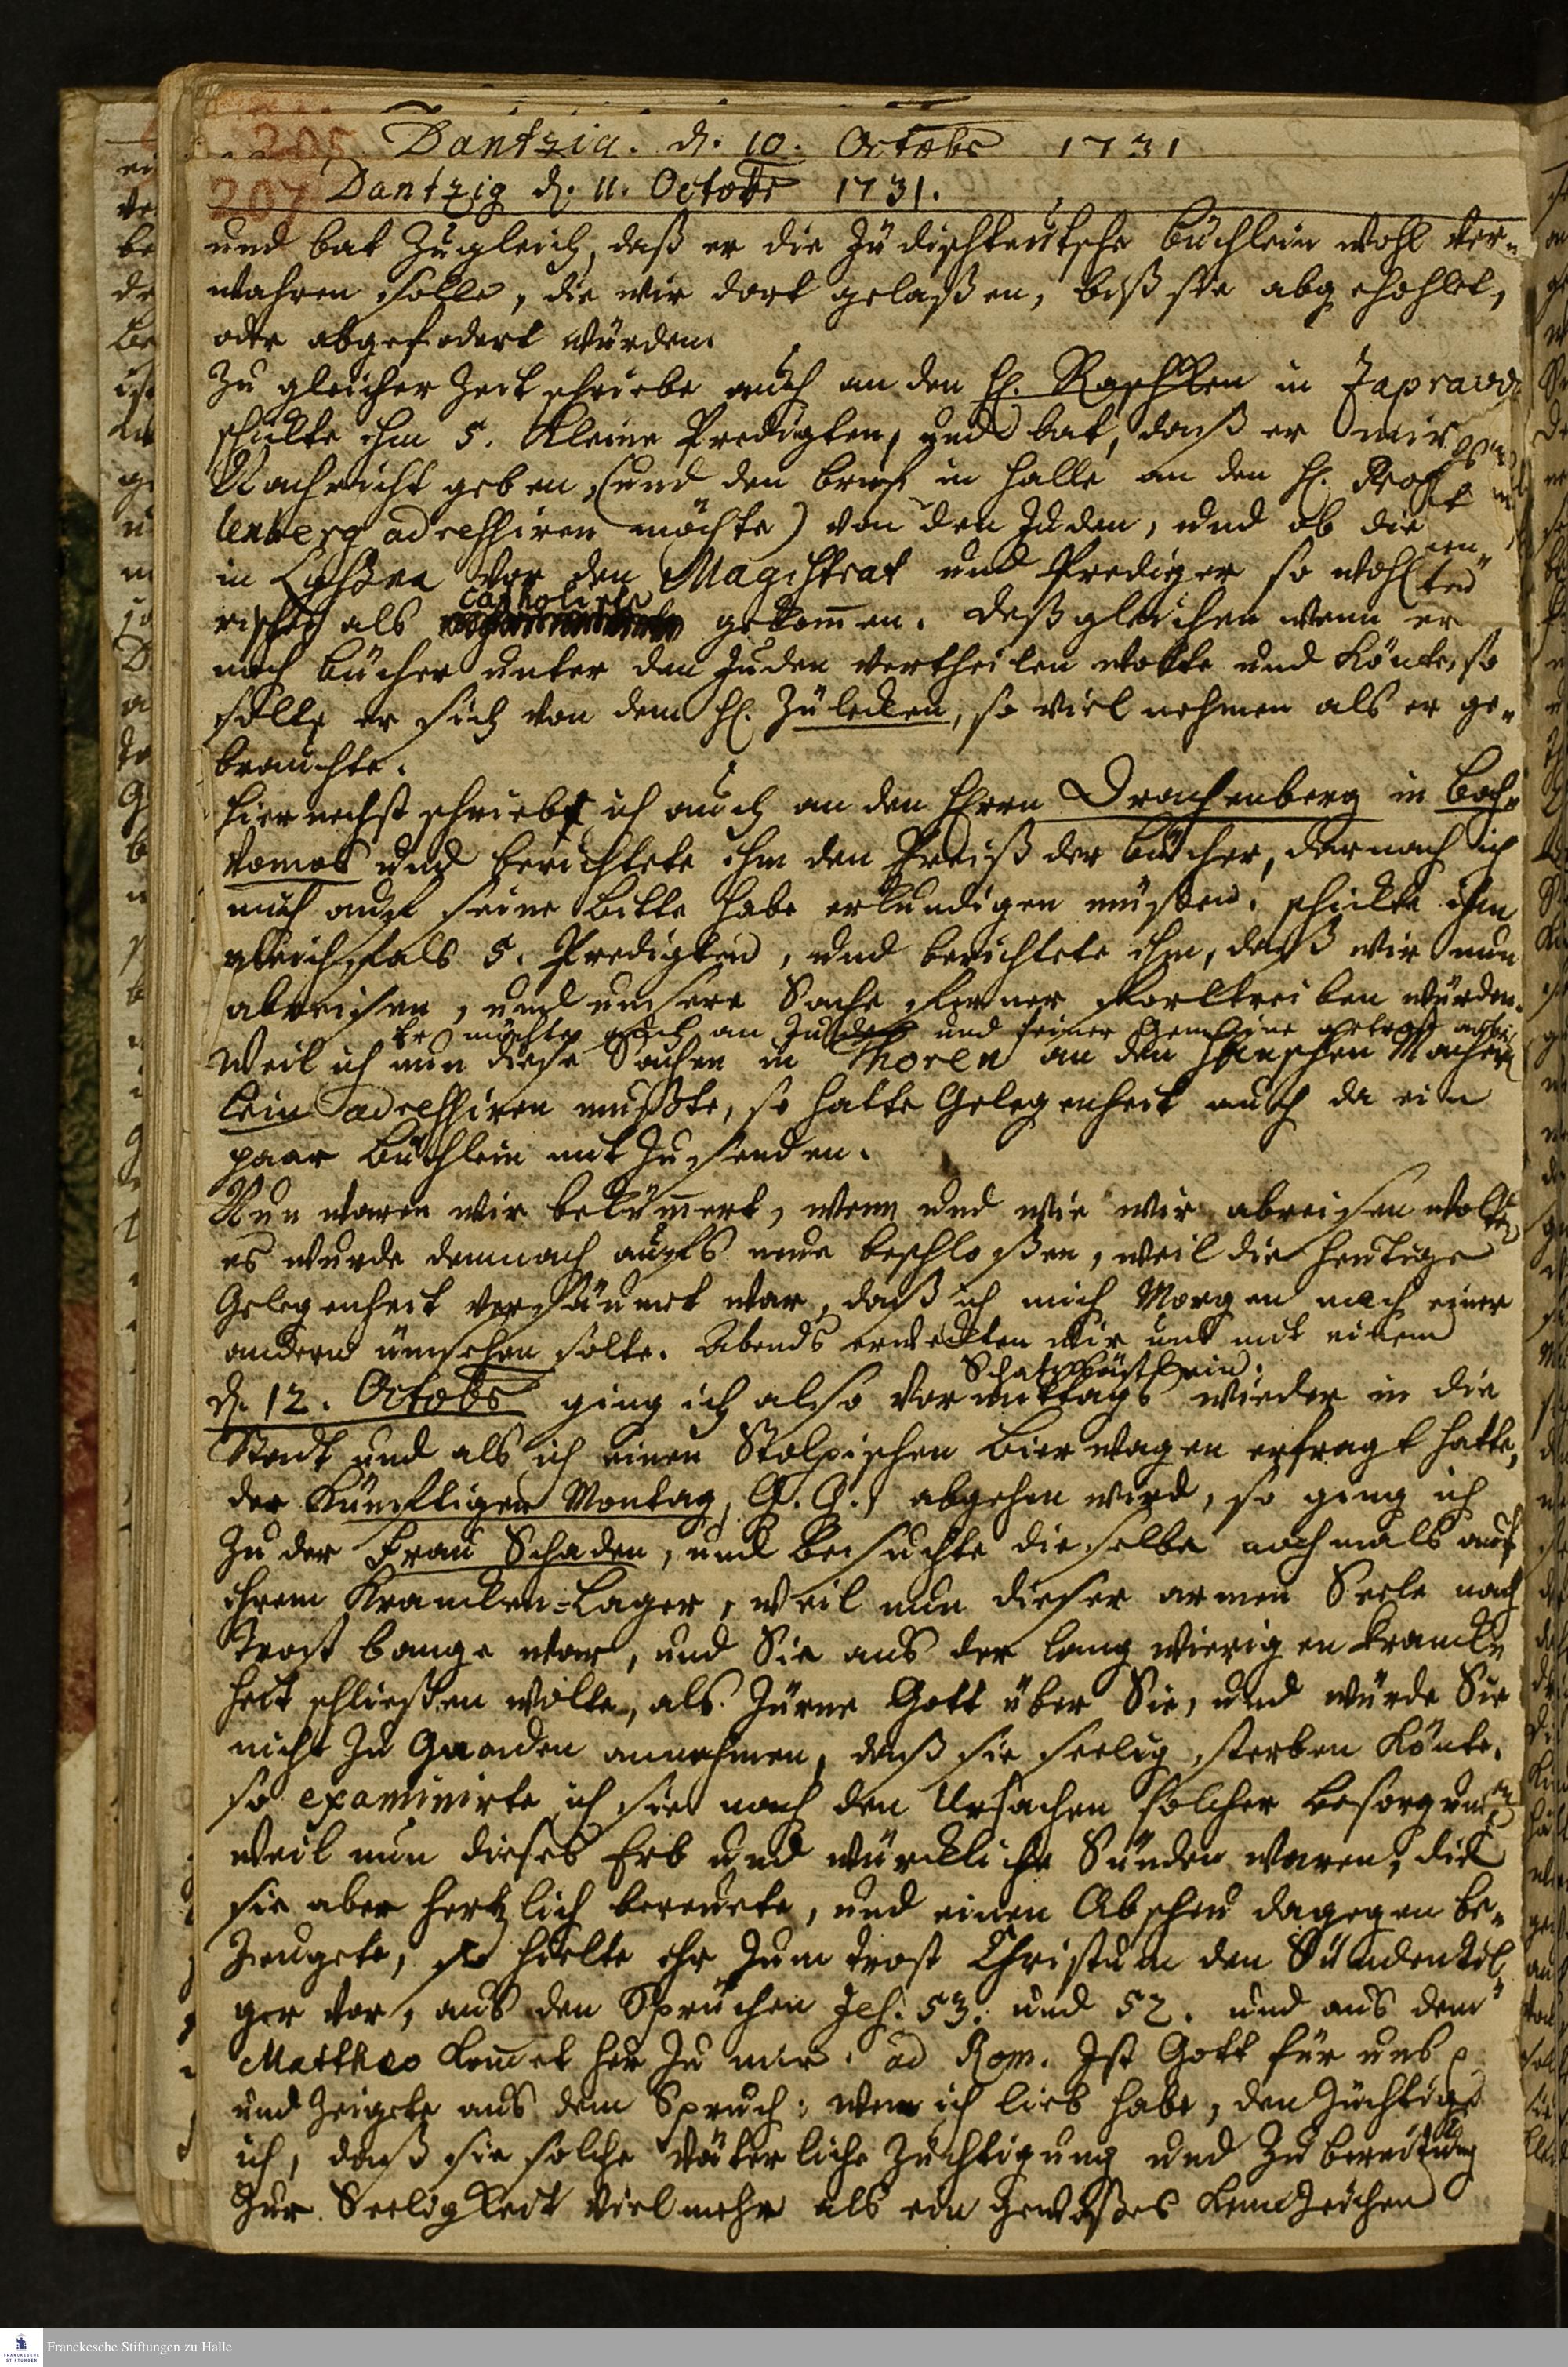 205 Dantzig. d. 10. Octobr 1731
207 Dantzig d. 11. Octobr 1731.
und bat zugleich, daß er die Jüdischteutsche büchlein wohl ver-
wahren solle, die wir dort gelaßen, biß sie abgehohlet,
oder abgefodert würden.
Zu gleicher Zeit schriebe auch an den H. Raschken in
schickte ihm 5. kleine Predigten, und bat, daß er mir
Nachricht geben (und den brief in Halle an den H. Prof
lenberg adressiren möchte) von den Juden, und ob die
in Lyßen vor den Magistrat und Prediger so wohl
rischen als catholische gekommen. Deßgleichen wenn er
noch bücher unter den Juden vertheilen wolte und könte, so
solle er sich von dem H. Zülecken, so viel nehmen als er ge-
brauchte.
Hiernechst schriebe ich auch an den Herrn Drachenberg in Boch-
und berichtete ihm den Preiß der bücher, darnach ich
mich auf seine bitte habe erkundigen müßen. schickte ihm
gleichfals 5. Predigten, und berichtete ihm, daß wir nun
abreisen, und unsere Sache ferner forttreiben würden.
Er möchte auch an Juden und seiner Gemeine getrost
Weil ich nun diese Sachen in Thoren an den
lein adressiren mußte, so hatte Gelegenheit auch da ein
paar büchlein mit zusenden.
Nun waren wir bekümmert, wenn und wie wir abreisen wolten
es wurde demnach aufs neue beschloßen, weil die heutige
Gelegenheit versäumet war, daß ich mich Morgen nach einer
andern ümsehen solte. Abends erweckten wir uns mit einem
Schatzkästlein.
d. 12. Octobr ging ich also vormittags wieder in die
Stadt und als ich einen Stolpischen bierwagen erfragt hatte,
der künftigen Montag, G. G. abgehen wird, so ging ich
zu der Frau Schaden, und besuchte dieselbe nochmals auf
ihrem Krancken-Lager, weil nun dieser armen Seele nach
trost bange war, und Sie aus der langwierigen kranck-
heit schließen wolte, als zürne Gott über Sie, und würde Sie
nicht zu Gnaden annehmen, daß sie seelig sterben könte.
so examinirte ich sie nach den Ursachen solcher besorgung
weil nun dieses Erb und würckliche Sünden waren, die
sie aber hertzlich bereuete, und einen Abscheu dagegen be-
zeugete, so hielte ihr zum trost Christum den Sündentil-
ger vor, aus den Sprüchen Jes. 53. und 52. und aus dem
Mattheo kommet her zu mir. ad Rom. Ist Gott für uns
und zeigete aus dem Spruch: wen ich lieb habe, den züchtige
ich, daß sie solche väterliche Züchtigung und Zubereitung
zur Seeligkeit vielmehr als ein gewißes kennzeichen
Franckesche Stiftungen zu Halle